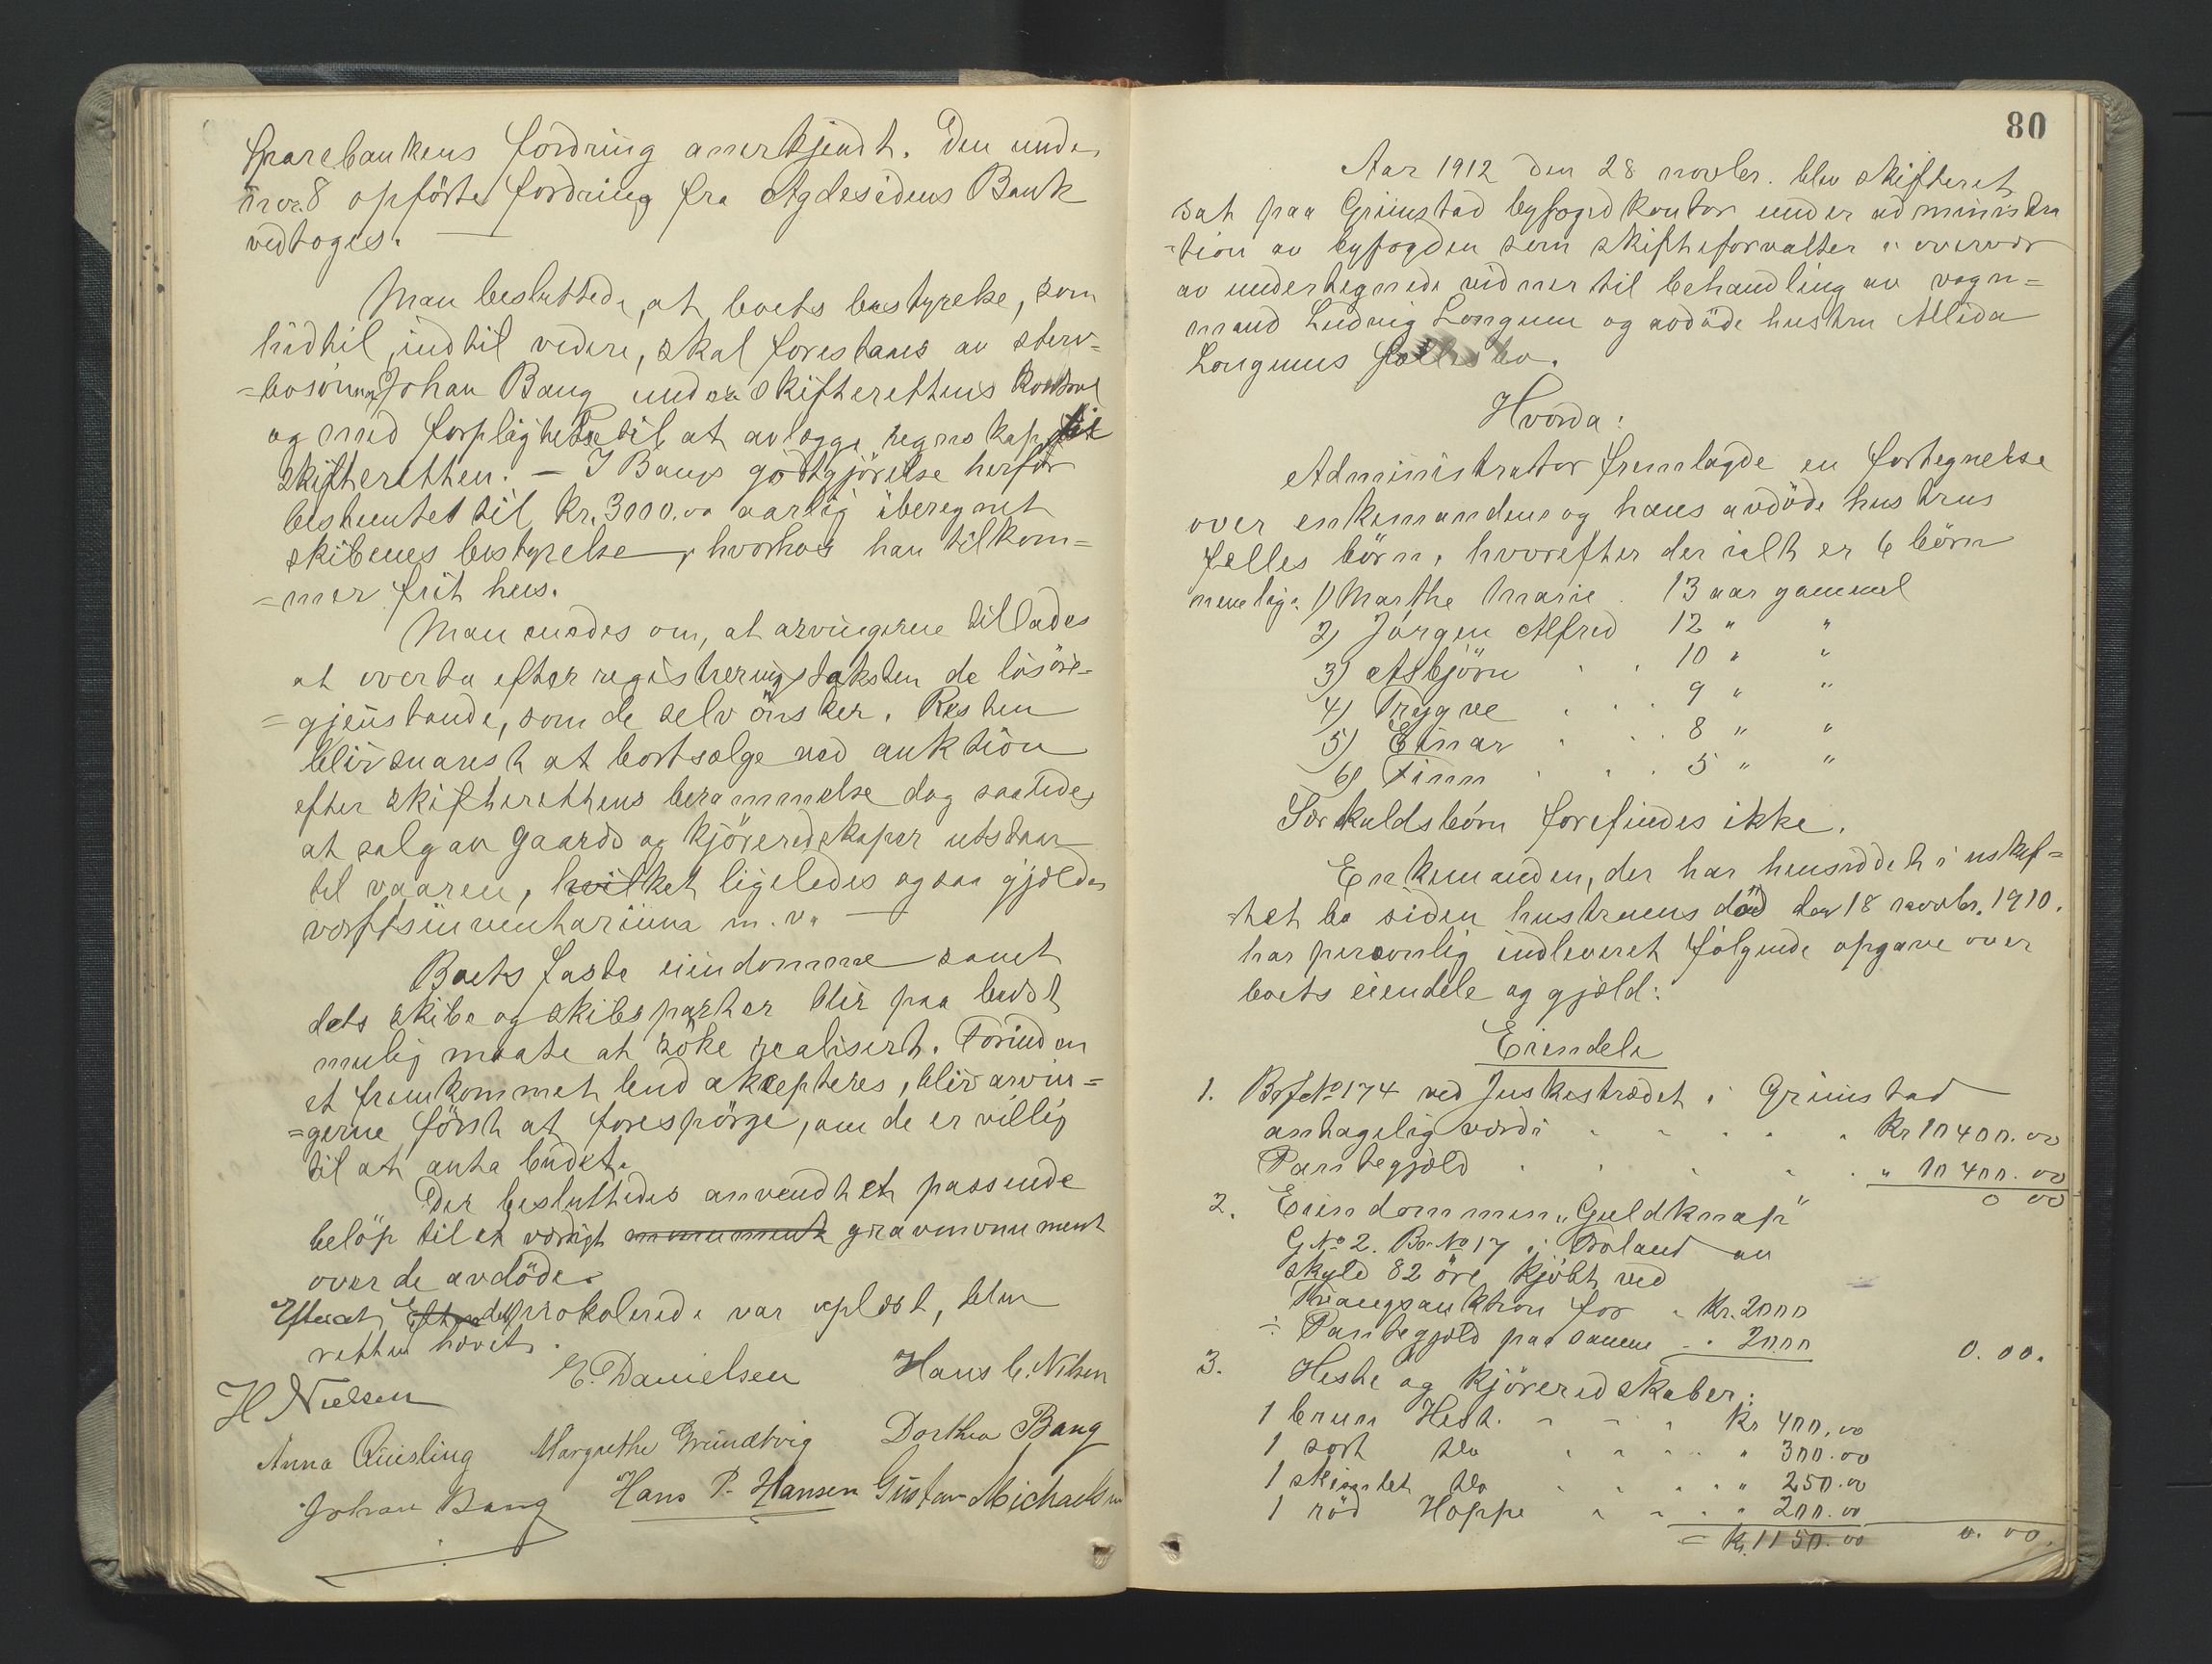 sparebankens fordring anerkjendt. Den under
nr. 8 opförte fordring fra Agdesidens Bank
vedtoges.
Man besluttede, at boets bestyrelse, som
hidtil, indtil videre, skal forestaaes av sterv-
=bosönnen Johan Bang under skifterettens kontrol
og med forpligtelse til at avlægge regnskap til
skifteretten. — J Bangs godtgjörelse herfor
bestemtes til kr. 3000.00 aarlig iberegnet
skibenes bestyrelse, hvorhos han tilkom=
=mer frit hus.
Man enedes om, at arvingerne tillades
at overta efter registreringstaksten de lösöre-
=gjenstande, som de selv önsker. Resten
blir snarest at bortsælge ved auktion
efter skifterettens berammelse dog saaledes
at salg av gaards og kjöreredskaper utstaar
til vaaren, hvilket ligeledes ogsaa gjælder
verftsinventarium m. v.
Boets faste eiendomme samt
dets skibe og skibsparter blir paa bedst
mulig maate at söke realisert. Forinden
et fremkommet bud aksepteres, blir arvin=
=gerne först at forespörge, om de er villig
til at anta budet.
Der besluttedes anvendt et passende
belöp til et værdigt monument gravmonument
over de avdöde.
Efterat Efter det prokolerede var oplæst, blev
retten hævet.
H Nielsen E. Danielsen Hans C. Nilsen
Anna Quisling Margrethe Grundtvig Dorthea Bang
Johan Bang Hans P. Hansen Gustav Michaelsen
80
Aar 1912 den 28 novbr. blev skifteret
sat paa Grimstad byfogdkontor under administra
-tion av byfogden som skifteforvalter i overvær
av undertegnede vidner til behandling av vogn=
mand Ludvig Longum og avdöde hustru Alida
Longums fællesbo.
Hvorda:
Administrator fremlagde en fortegnelse
over enkemandens og hans avdöde hustrus
felles börn, hvorefter der ialt er 6 börn
nemlig: 1) Marthe Marie . 13 aar gammel
2) Jörgen Alfred 12 " "
3) Asbjörn . . 10 " "
4) Trygve . . . 9 " "
5) Einar . . . 8 " "
6) Finn . . . 5 " "
Særkuldsbörn forefindes ikke.
Enkemanden, der har hensiddet i uskif=
-tet bo siden hustruens död den 18 novbr. 1910.
har personlig indleveret fölgende opgave over
boets eiendele og gjæld:
Eiendele
1. Brf. No 174 ved Juskestrædet i Grimstad
antagelig værdi . . . . . Kr 10400.00
Pantegjæld . . . . . " 10400.00
0 00
2. Eiendommen "Guldknap"
G No 2. Br. No 17 i Froland av
skyld 82 öre kjöbt ved
Tvangsauktion for . Kr. 2000
÷ Pantegjæld paa samme . . 2000 0.00.
3. Heste og kjöreredskaber:
1 brun Hest. . . . Kr 400.00
1 sort do . . . . " 300.00
1 skimlet do . . . . " 250.00
1 röd Hoppe . . . " 200.00
= Kr. 1150.00 0.00.